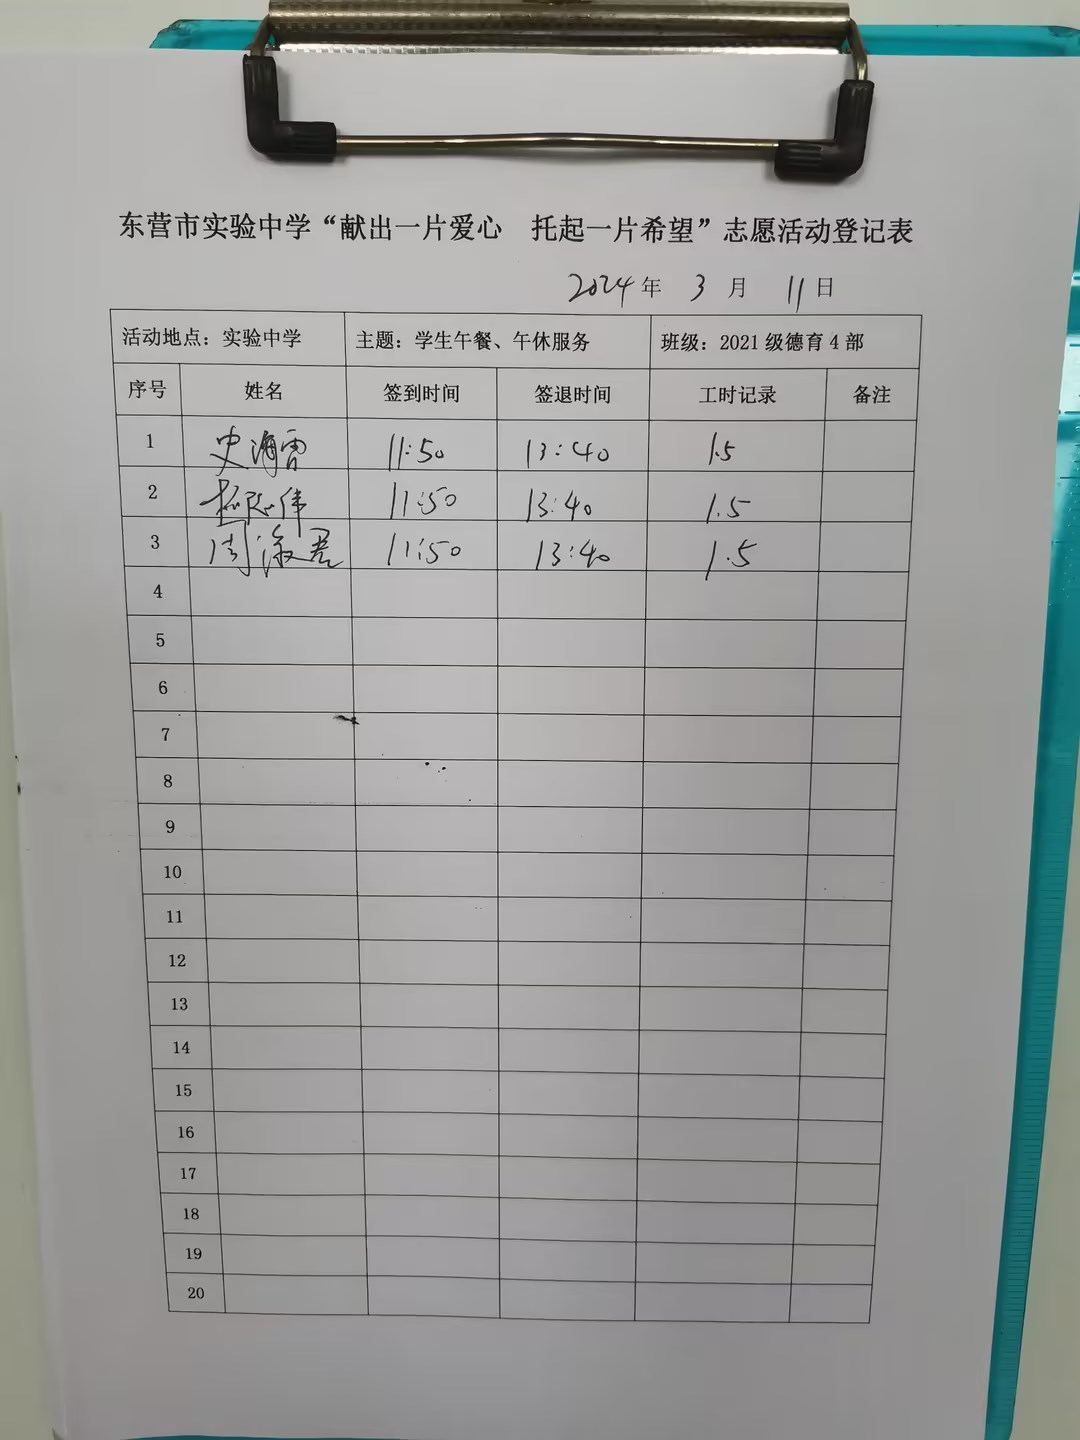 东营市实验中学“献出一片爱心 托起一片希望”志愿活动登记表
2024年 3月 11日
活动地点：实验中学 主题：学生午餐、午休服务 班级：2021级德育4部
序号 姓名 签到时间 签退时间 工时记录 备注
1 史海雷 11:50 13:40 1.5
2 伟 11:50 13:40 1.5
3 周淑君 11:50 13:40 1.5
4
5
6
7
8
9
10
11
12
13
14
15
16
17
18
19
20